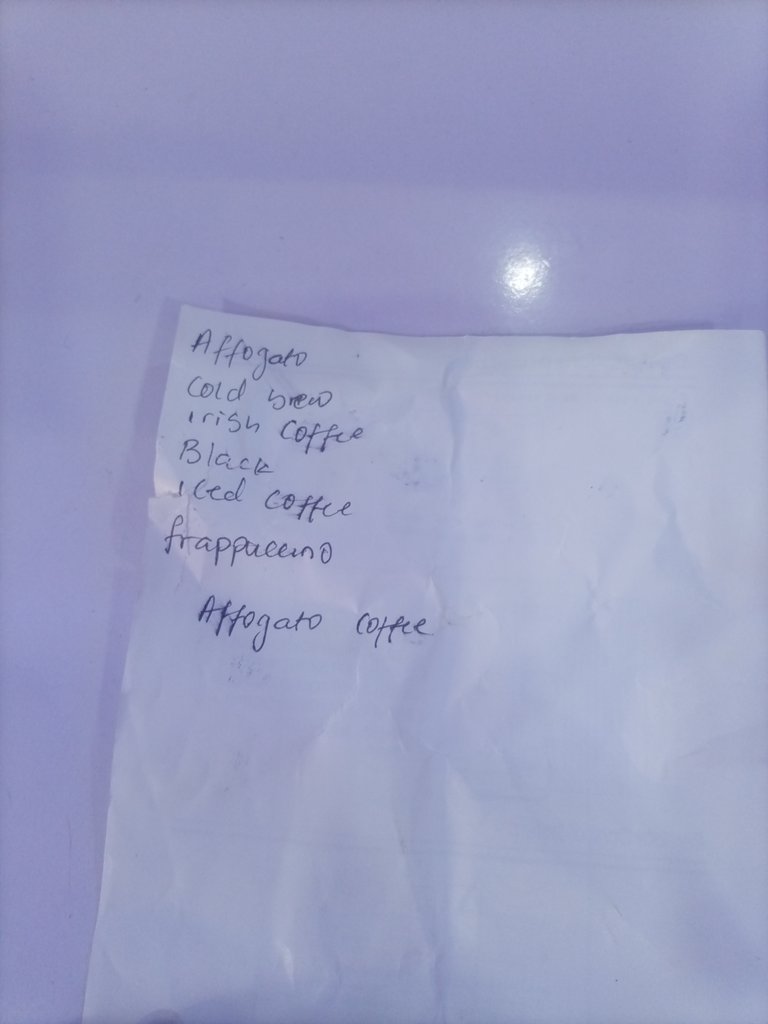 Affogato
Cold brew
irish coffee
Black
iced coffee
frappuccino
Affogato coffee